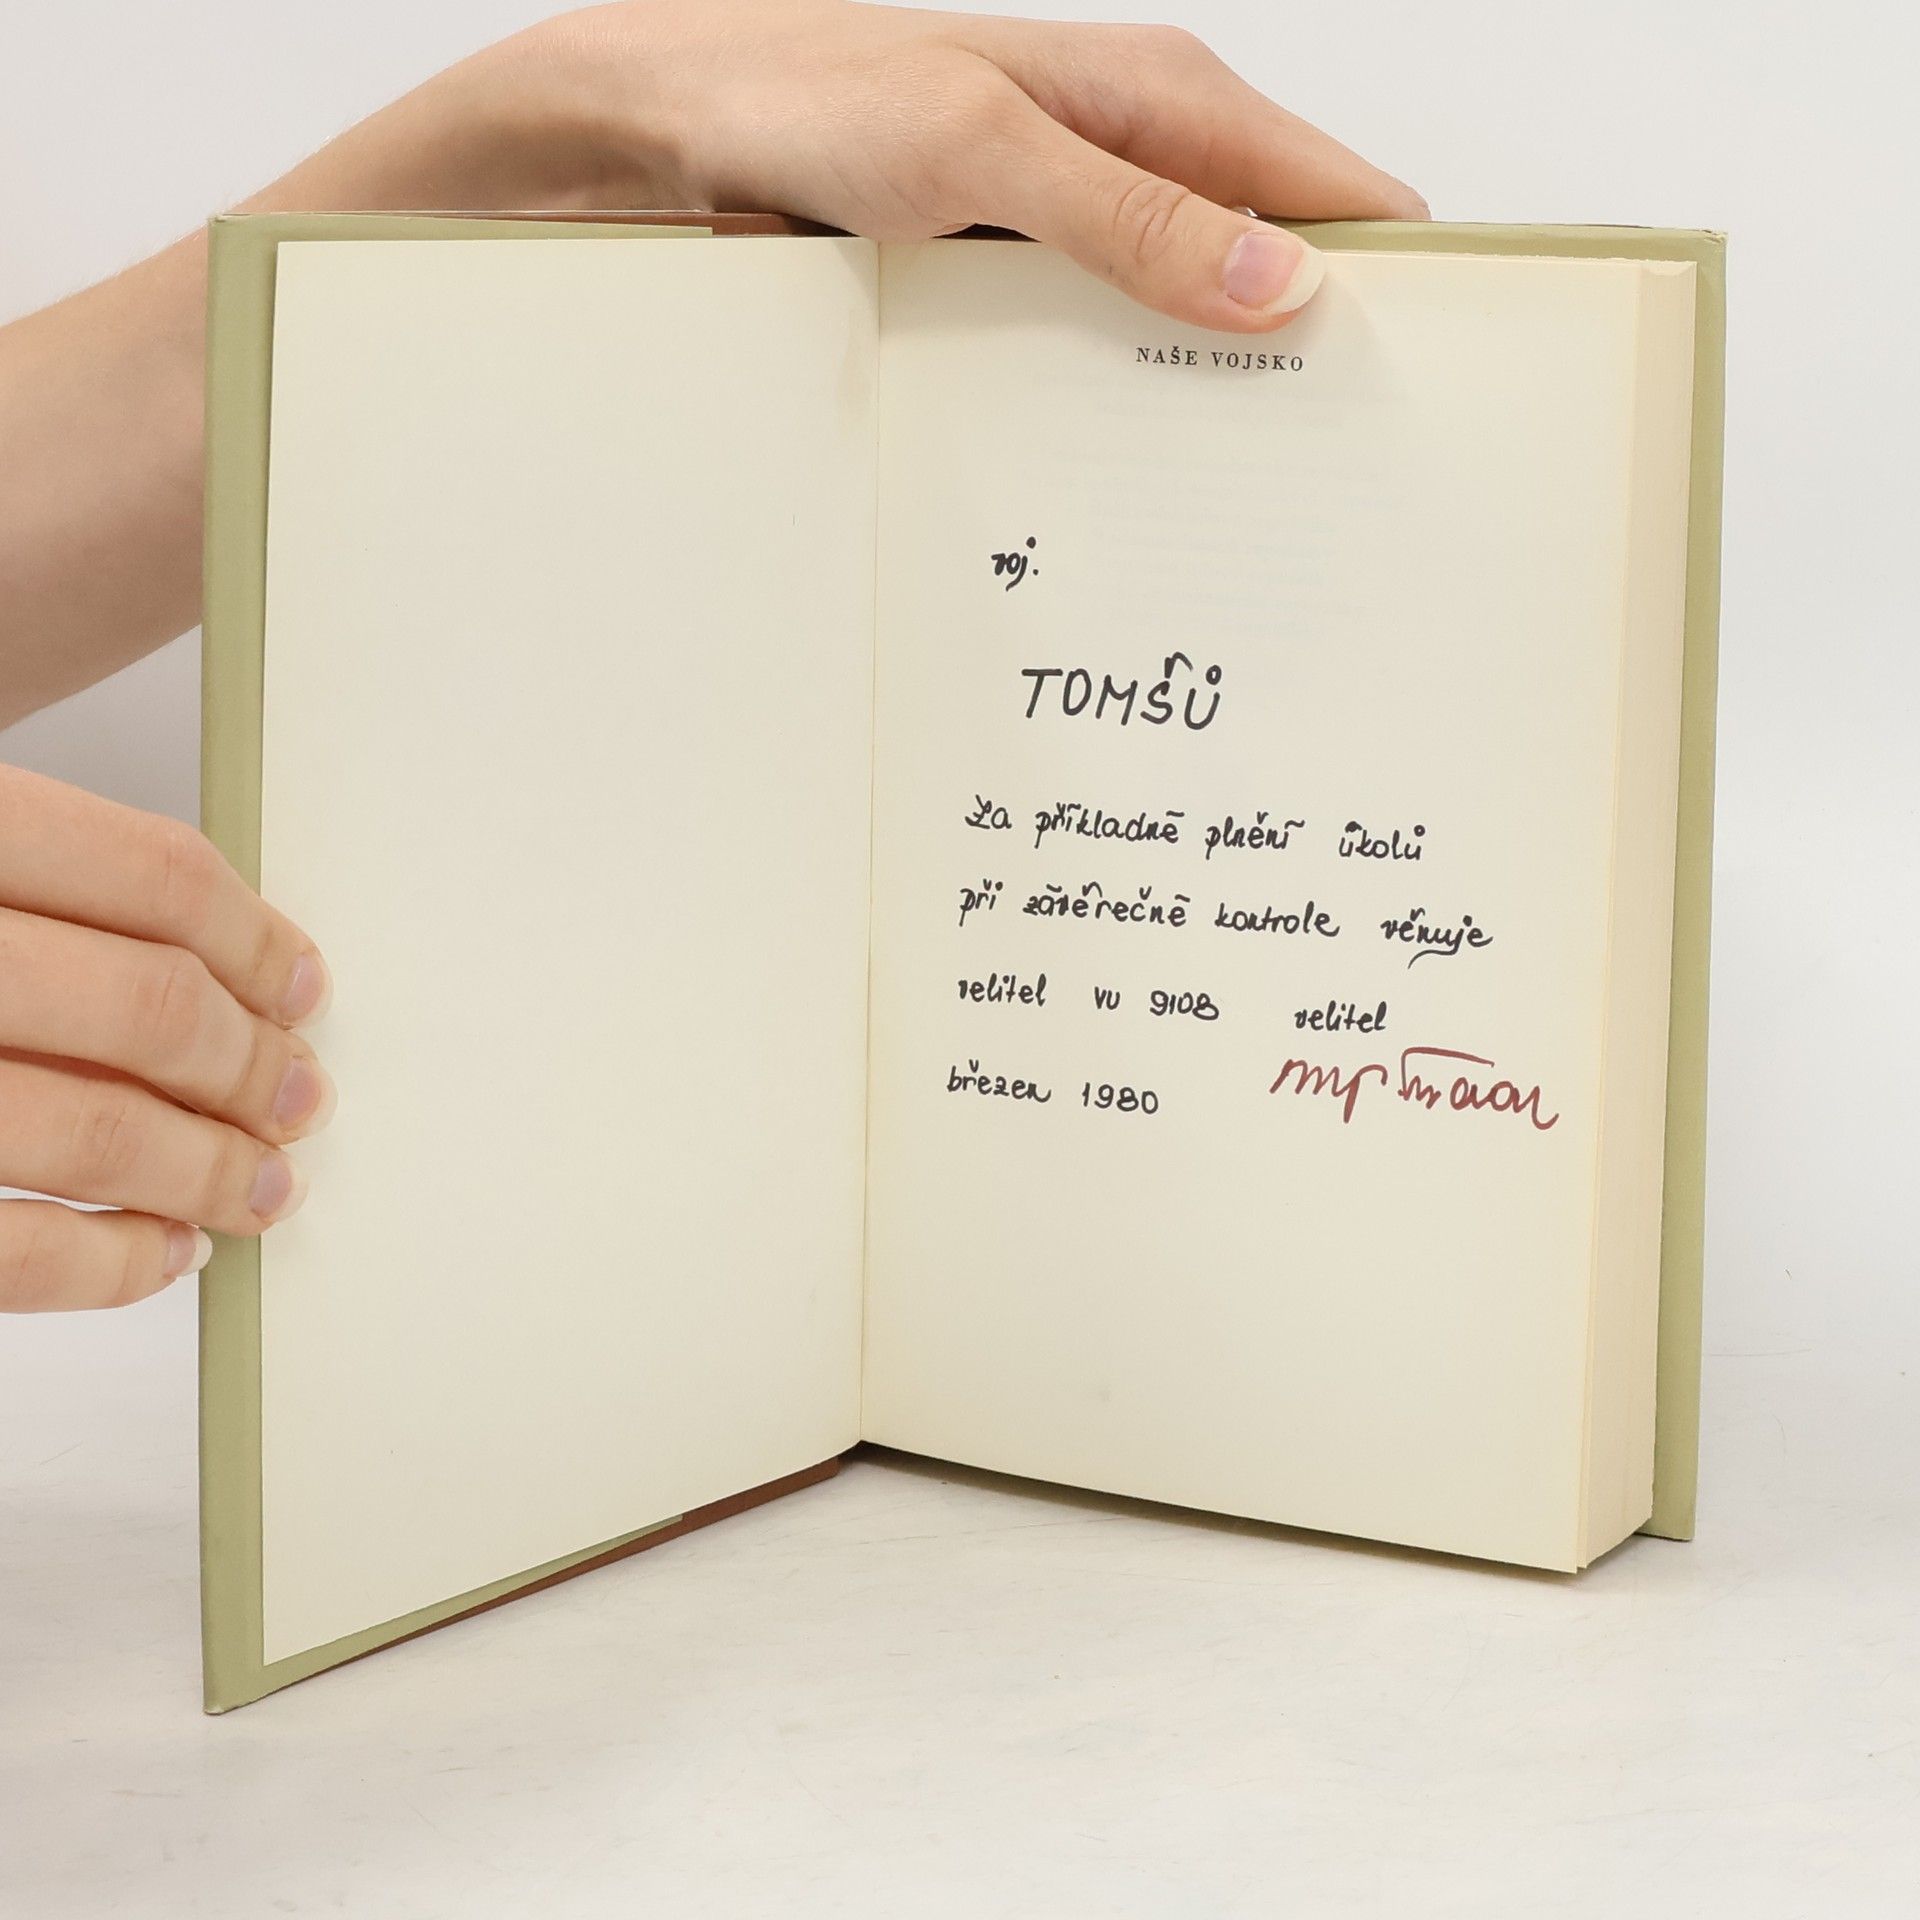 NAŠE VOJSKO
voj.
TOMŠŮ
Za příkladné plnění úkolů
při závěrečné kontrole věnuje
velitel VU 9108 velitel
březen 1980